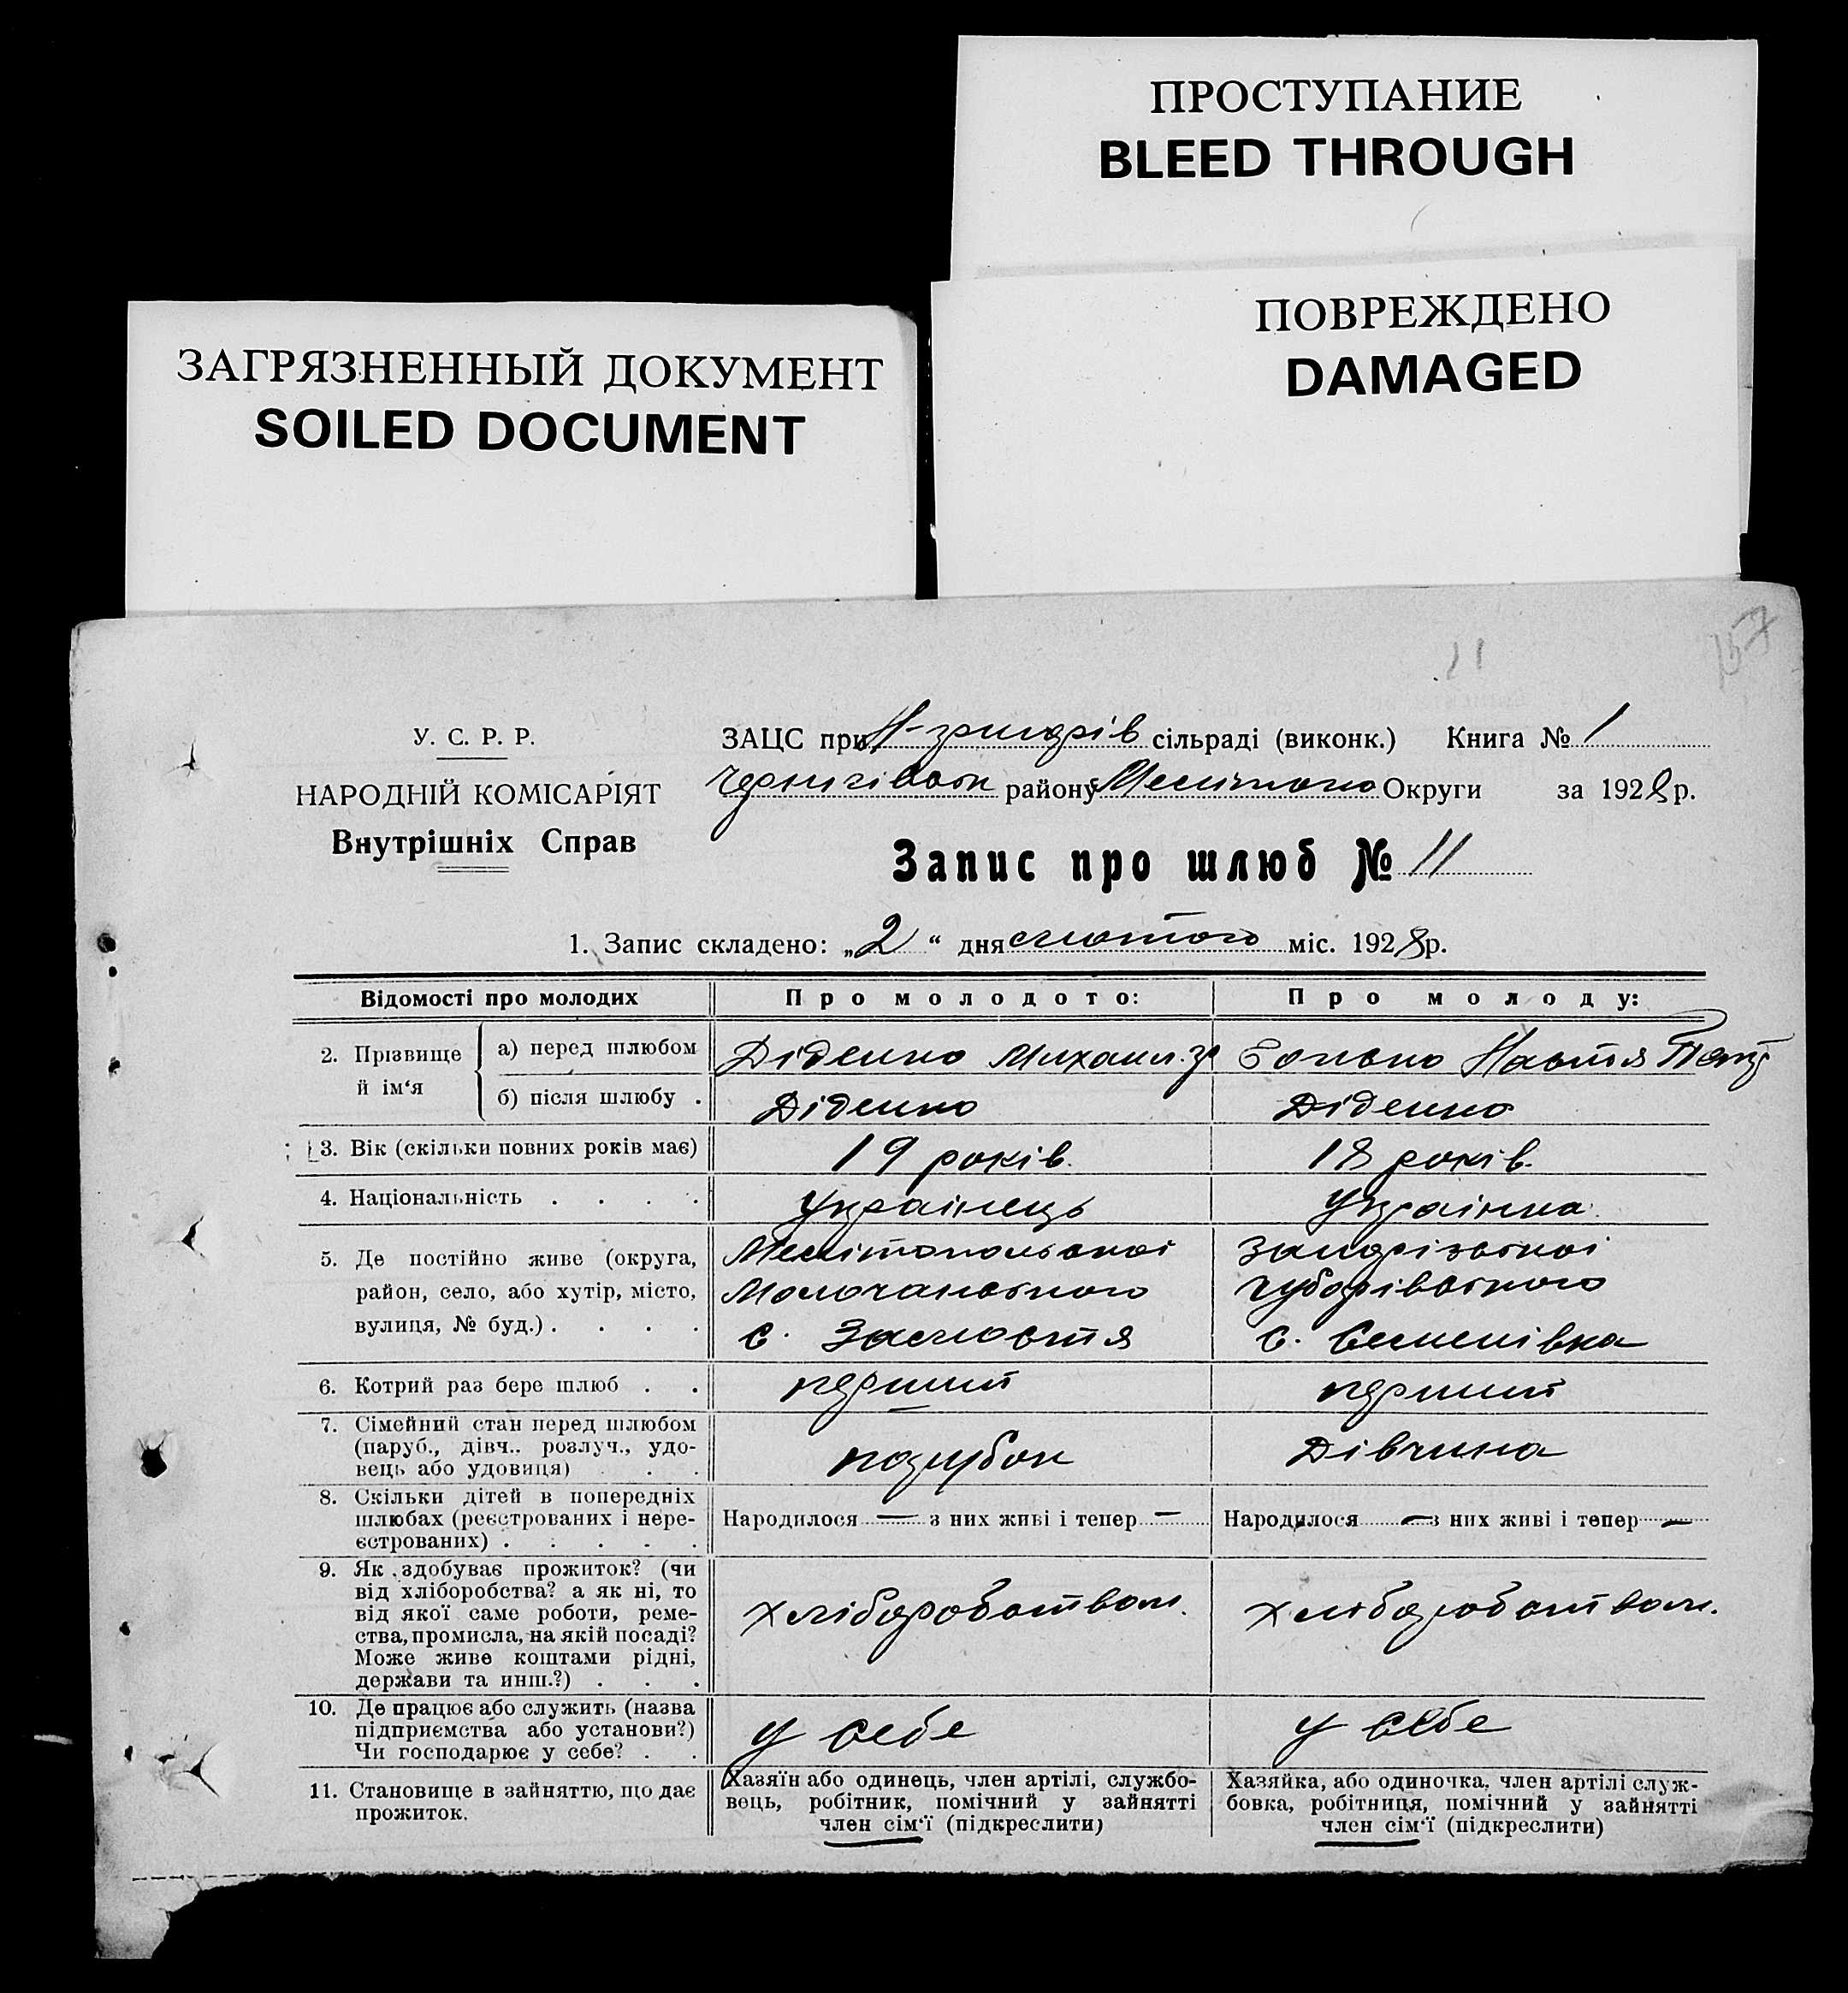 ПРОСТУПАНИЕ
BLEED THROUGH
ПОВРЕЖДЕНО
DAMAGED
ЗАГРЯЗНЕННЫЙ ДОКУМЕНТ
SOILED DOCUMENT
11
157
У. С. Р. Р.
НАРОДНІЙ КОМІСАРІЯТ
Внутрішніх Справ
ЗАЦС при сільраді (виконк.) Книга № 1
Чернигівськ району Меліток Округи за 1928 р.
Запис про шлюб № 11
1. Запис складено: „2“ дня лютого міс. 1928 р.
Відомості про молодих
Про молодого:
Про молоду:
2. Прізвище й ім‘я
а) перед шлюбом
Діденко Михаил
Настя Петр
б) після шлюбу .
Діденко
Діденко
3. Вік (скільки повних років має)
19 років.
18 років.
4. Національність . . . .
Українець
Українка.
5. Де постійно живе (округа,
район, село, або хутір, місто,
вулиця, № буд.) . . . .
Мелітопольської
Молочанського
с.
Запорізської
с. Семенівка
6. Котрий раз бере шлюб . .
перший
перший
7. Сімейний стан перед шлюбом
(паруб., дівч.. розлуч., удо-
вець або удовиця) . .
парубок
Дівчина
8. Скільки дітей в попередніх
шлюбах (реєстрованих і нере-
єстрованих) . . . . .
Народилося — з них живі і тепер —
Народилося — з них живі і тепер —
9. Як здобуває прожиток? (чи
від хліборобства? а як ні, то
від якої саме роботи, реме-
ства, промисла, на якій посаді?
Може живе коштами рідні,
держави та инш.?) . . .
хліборобством.
хліборобством.
10. Де працює або служить (назва
підприємства або установи?)
Чи господарює у себе? . .
у себе
у себе
11. Становище в зайняттю, що дає
прожиток.
Хазяїн або одинець, член артілі, службо-
вець, робітник, помічний у зайнятті
член сім‘ї (підкреслити)
Хазяйка, або одиночка, член артілі служ-
бовка, робітниця, помічний у зайнятті
член сім‘ї (підкреслити)